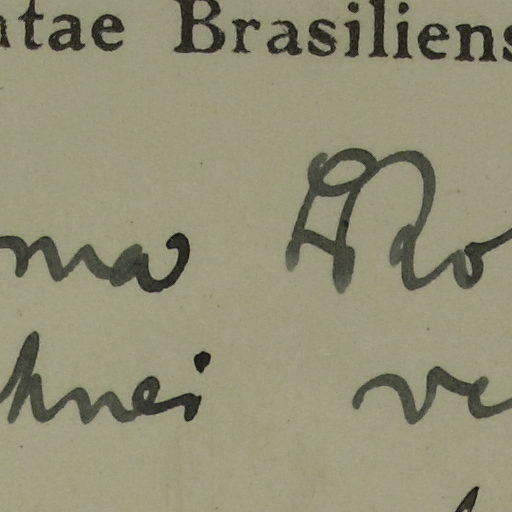 ntae Brasiliens
ma Ro
hnei ve